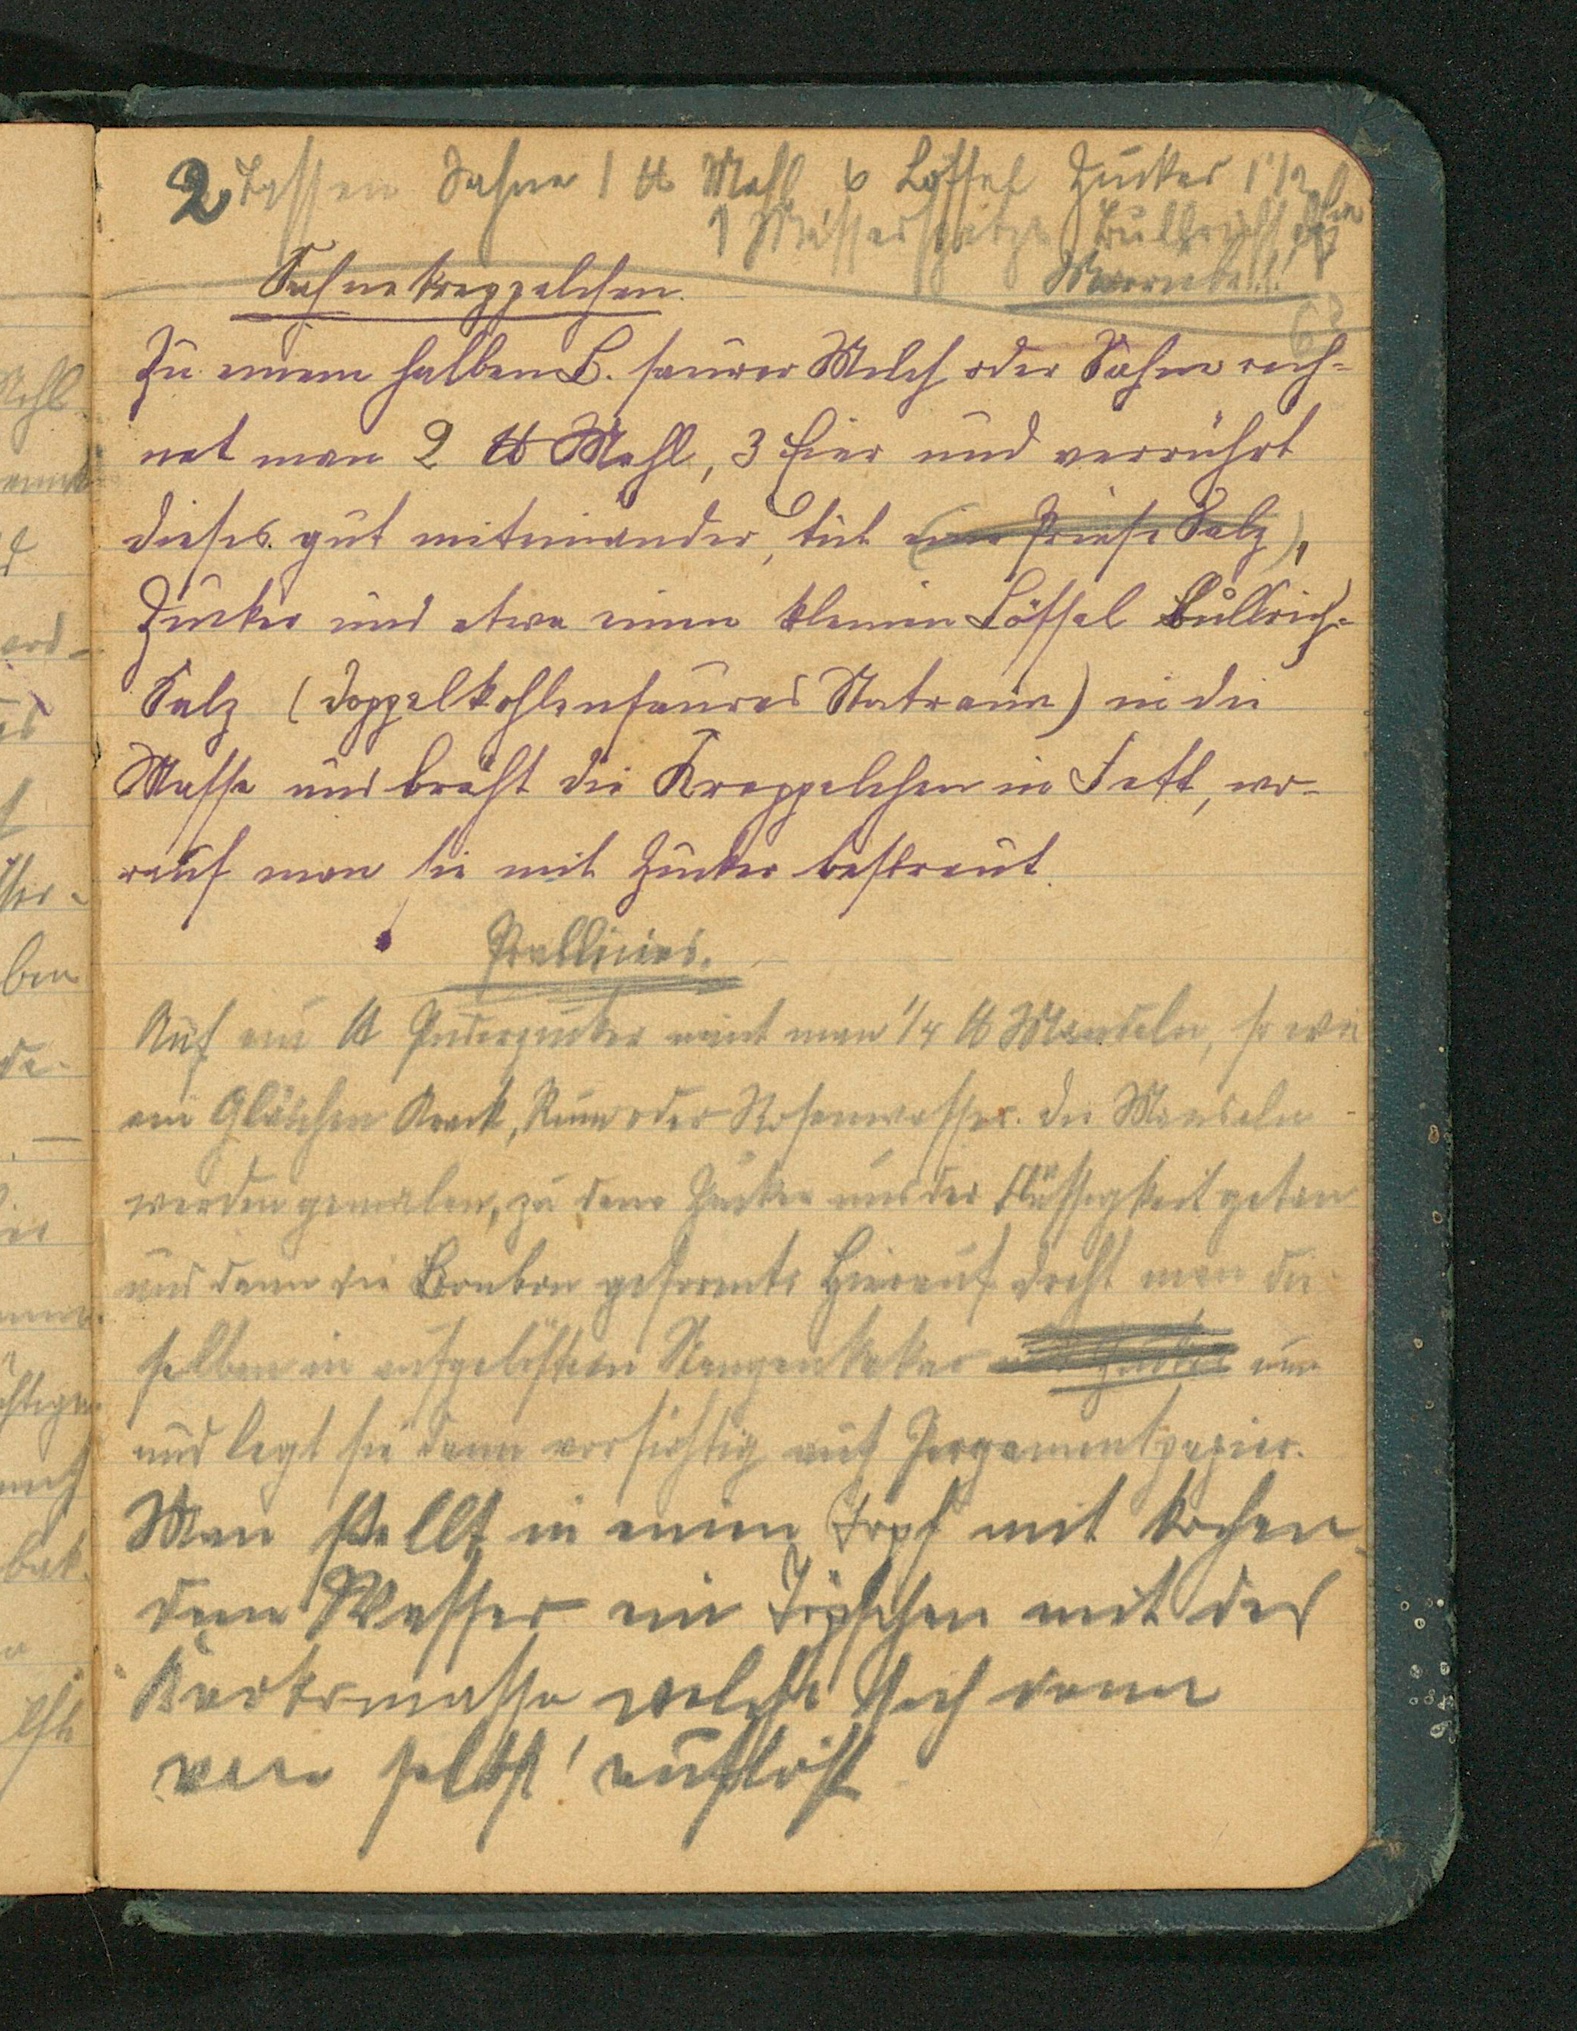 2 Tassen Sahne 1 ℔ Mehl 6 Löffel Zucker 1 1/2
1 Messerspitze Bullrich
Sahnekreppelchen.
Zu einem halben L. saurer Milch oder Sahne rech-
net man 2 ℔ Mehl, 3 Eier und verrührt
dieses gut miteinander, tut (eine Priese Salz),
Zucker und etwa einen kleinen Löffel Bullrich-
Salz (doppelkohlensaures Natrium) in die
Masse und bräht die Kreppelchen in Fett, wo-
rauf man sie mit Zucker bestreut.
Prallinies.
Auf ein ℔ Puderzucker nimt man 1/4 ℔ Mandeln, so wie
ein Gläschen Arack, Rum oder Rosenwasser. Die Mandeln
werden gemalen, zu dem Zucker und der Flüssigkeit getan
und dann die Bonbon geformt. Hierauf dreht man die
selben in aufgelöstem Stangenkakao um
und legt sie dann vorsichtig auf Pergamentpapier.
Man stellt in einen Topf mit kochen-
dem Wasser ein Töpfchen mit der
Kaokomasse welche sich dann
von selbst auflöst